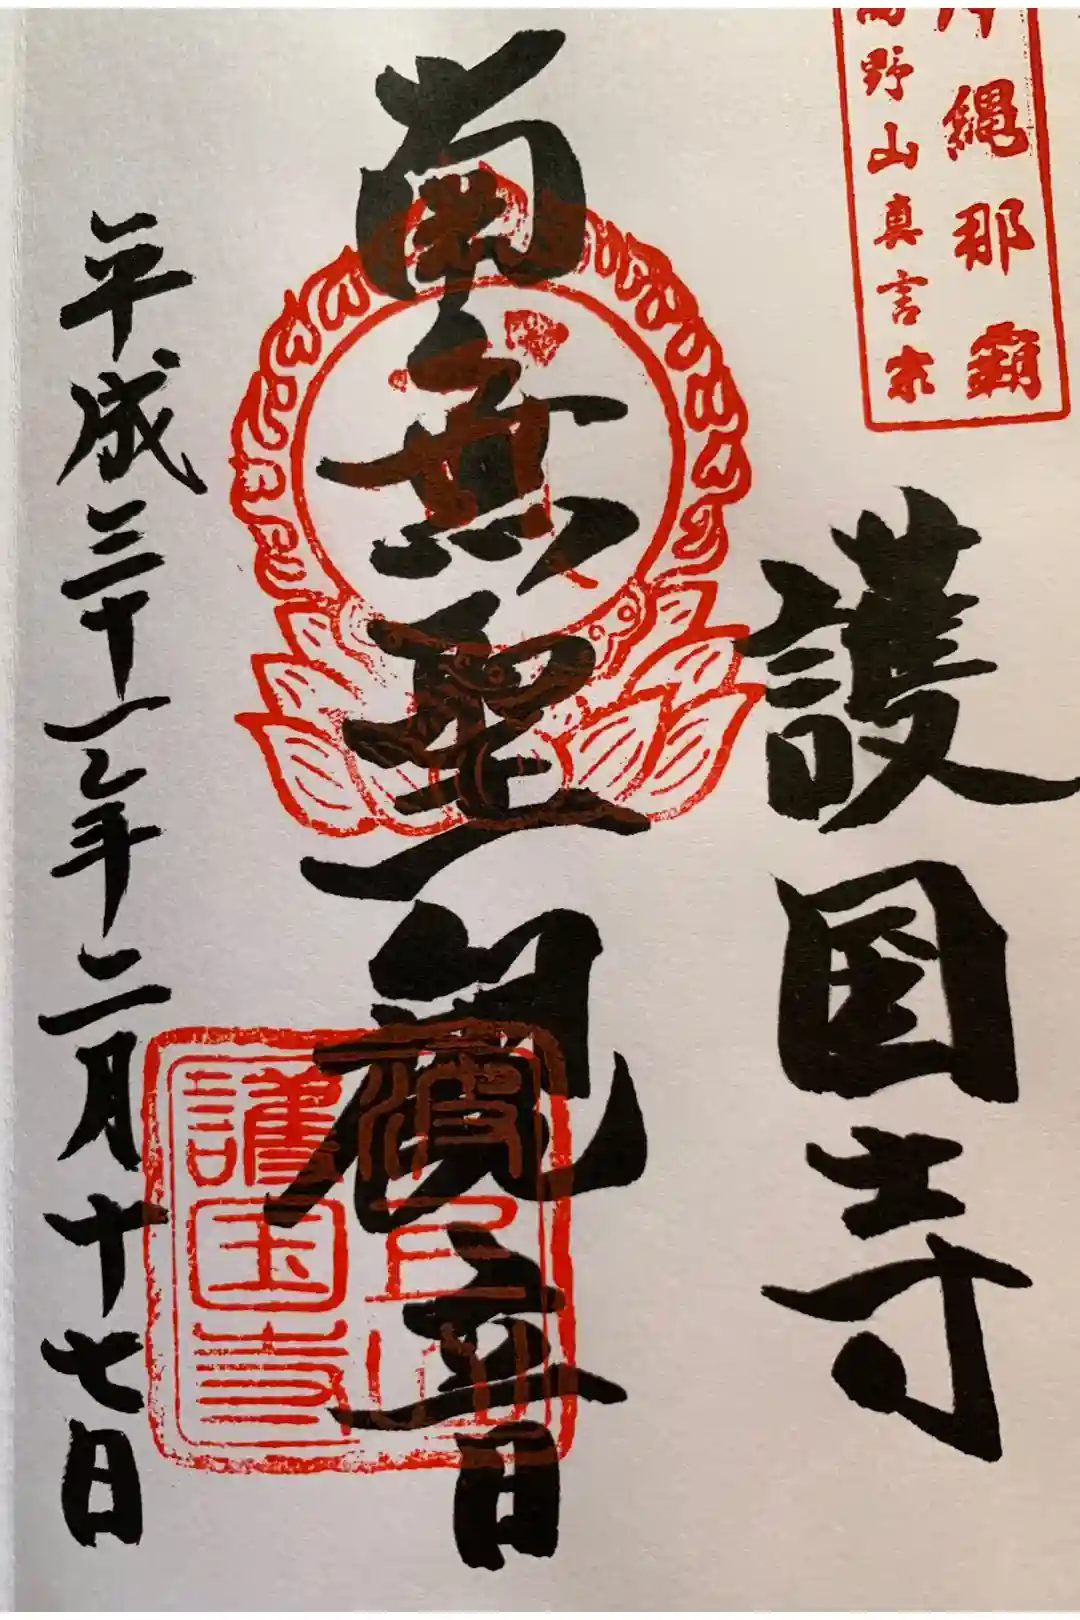 縄那覇
高野山真言宗
護国寺
南無聖観音
波上山
護国寺
平成三十一年二月十七日